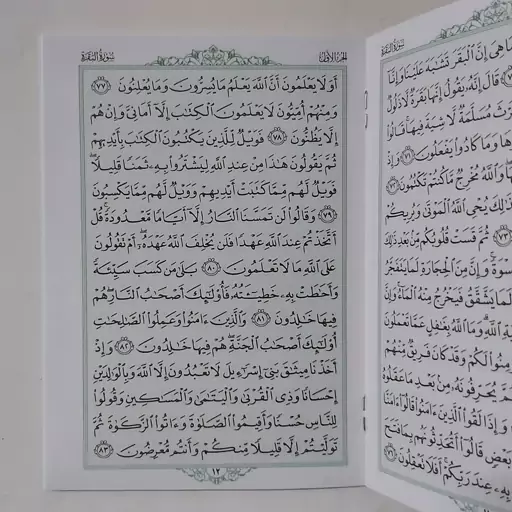 سُورَةُ البَقَرَةِ
مَا هِىَ إِنَّ ٱلْبَقَرَ تَشَـٰبَهَ عَلَيْنَا وَإِنَّآ
قَالَ إِنَّهُۥ يَقُولُ إِنَّهَا بَقَرَةٌ لَّا ذَلُولٌ
مُسَلَّمَةٌ لَّا شِيَةَ فِيهَا قَالُوا۟
وَمَا كَادُوا۟ يَفْعَلُونَ ٧١
وَٱللَّهُ مُخْرِجٌ مَّا كُنتُمْ تَكْتُمُونَ ٧٢
يُحْىِ ٱللَّهُ ٱلْمَوْتَىٰ وَيُرِيكُمْ
٧٣ ثُمَّ قَسَتْ قُلُوبُكُم مِّنۢ بَعْدِ ذَٰلِكَ
وَإِنَّ مِنَ ٱلْحِجَارَةِ لَمَا يَتَفَجَّرُ
لَمَا يَشَّقَّقُ فَيَخْرُجُ مِنْهُ ٱلْمَآءُ وَإِنَّ
ٱللَّهِ وَمَا ٱللَّهُ بِغَـٰفِلٍ عَمَّا تَعْمَلُونَ
لَكُمْ وَقَدْ كَانَ فَرِيقٌ مِّنْهُمْ
يُحَرِّفُونَهُۥ مِنۢ بَعْدِ مَا عَقَلُوهُ
وَإِذَا لَقُوا۟ ٱلَّذِينَ ءَامَنُوا۟ قَالُوٓا۟ ءَامَنَّا
بَعْضٍ قَالُوٓا۟ أَتُحَدِّثُونَهُم بِمَا فَتَحَ
بِهِۦ عِندَ رَبِّكُمْ أَفَلَا تَعْقِلُونَ ٧٦
الجُزْءُ الأَوَّلُ
سُورَةُ البَقَرَةِ
أَوَلَا يَعْلَمُونَ أَنَّ ٱللَّهَ يَعْلَمُ مَا يُسِرُّونَ وَمَا يُعْلِنُونَ ٧٧
وَمِنْهُمْ أُمِّيُّونَ لَا يَعْلَمُونَ ٱلْكِتَـٰبَ إِلَّآ أَمَانِىَّ وَإِنْ هُمْ
إِلَّا يَظُنُّونَ ٧٨ فَوَيْلٌ لِّلَّذِينَ يَكْتُبُونَ ٱلْكِتَـٰبَ بِأَيْدِيهِمْ
ثُمَّ يَقُولُونَ هَـٰذَا مِنْ عِندِ ٱللَّهِ لِيَشْتَرُوا۟ بِهِۦ ثَمَنًا قَلِيلًا
فَوَيْلٌ لَّهُم مِّمَّا كَتَبَتْ أَيْدِيهِمْ وَوَيْلٌ لَّهُم مِّمَّا يَكْسِبُونَ
٧٩ وَقَالُوا۟ لَن تَمَسَّنَا ٱلنَّارُ إِلَّآ أَيَّامًا مَّعْدُودَةً قُلْ
أَتَّخَذْتُمْ عِندَ ٱللَّهِ عَهْدًا فَلَن يُخْلِفَ ٱللَّهُ عَهْدَهُۥٓ أَمْ تَقُولُونَ
عَلَى ٱللَّهِ مَا لَا تَعْلَمُونَ ٨٠ بَلَىٰ مَن كَسَبَ سَيِّئَةً
وَأَحَـٰطَتْ بِهِۦ خَطِيٓـَٔتُهُۥ فَأُو۟لَـٰٓئِكَ أَصْحَـٰبُ ٱلنَّارِ هُمْ
فِيهَا خَـٰلِدُونَ ٨١ وَٱلَّذِينَ ءَامَنُوا۟ وَعَمِلُوا۟ ٱلصَّـٰلِحَـٰتِ
أُو۟لَـٰٓئِكَ أَصْحَـٰبُ ٱلْجَنَّةِ هُمْ فِيهَا خَـٰلِدُونَ ٨٢ وَإِذْ
أَخَذْنَا مِيثَـٰقَ بَنِىٓ إِسْرَٰٓءِيلَ لَا تَعْبُدُونَ إِلَّا ٱللَّهَ وَبِٱلْوَٰلِدَيْنِ
إِحْسَانًا وَذِى ٱلْقُرْبَىٰ وَٱلْيَتَـٰمَىٰ وَٱلْمَسَـٰكِينِ وَقُولُوا۟
لِلنَّاسِ حُسْنًا وَأَقِيمُوا۟ ٱلصَّلَوٰةَ وَءَاتُوا۟ ٱلزَّكَوٰةَ ثُمَّ
تَوَلَّيْتُمْ إِلَّا قَلِيلًا مِّنكُمْ وَأَنتُم مُّعْرِضُونَ ٨٣
١٢